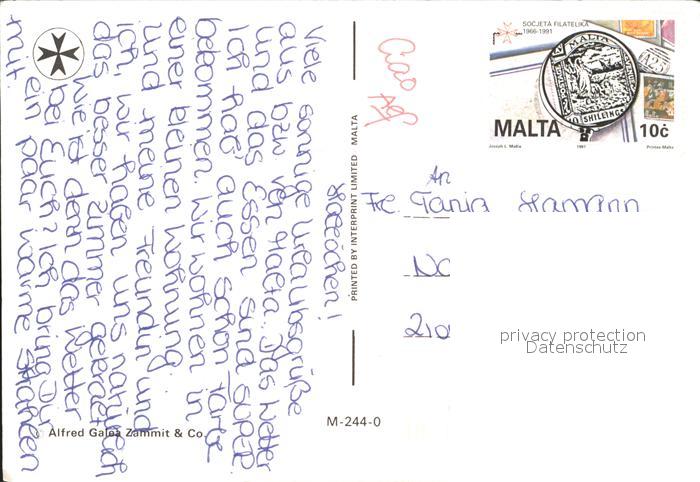 Hexchen!
Viele sonnige Urlaubsgrüße
aus bzw. von Malta. Das Wetter
und das Essen sind super.
Ich hab auch schon Farbe
bekommen. Wir wohnen in
einer kleinen Wohnung
und meine Freundin und
ich, wir haben uns natürlich
das besser Zimmer gekrallt
Wie ist denn das Wetter
bei Euch? Ich bring Dir
ein paar warme Strahlen
mit.
Ciao
SOĊJETÀ FILATELIKA
1966-1991
MALTA
10 SHILLING
MALTA 10ċ
Joseph L. Mallia 1991 Printex-Malta
An
Frl. Tanja Hamann
No
210
privacy protection
Datenschutz
PRINTED BY INTERPRINT LIMITED MALTA
M-244-0
Alfred Galea Zammit & Co.